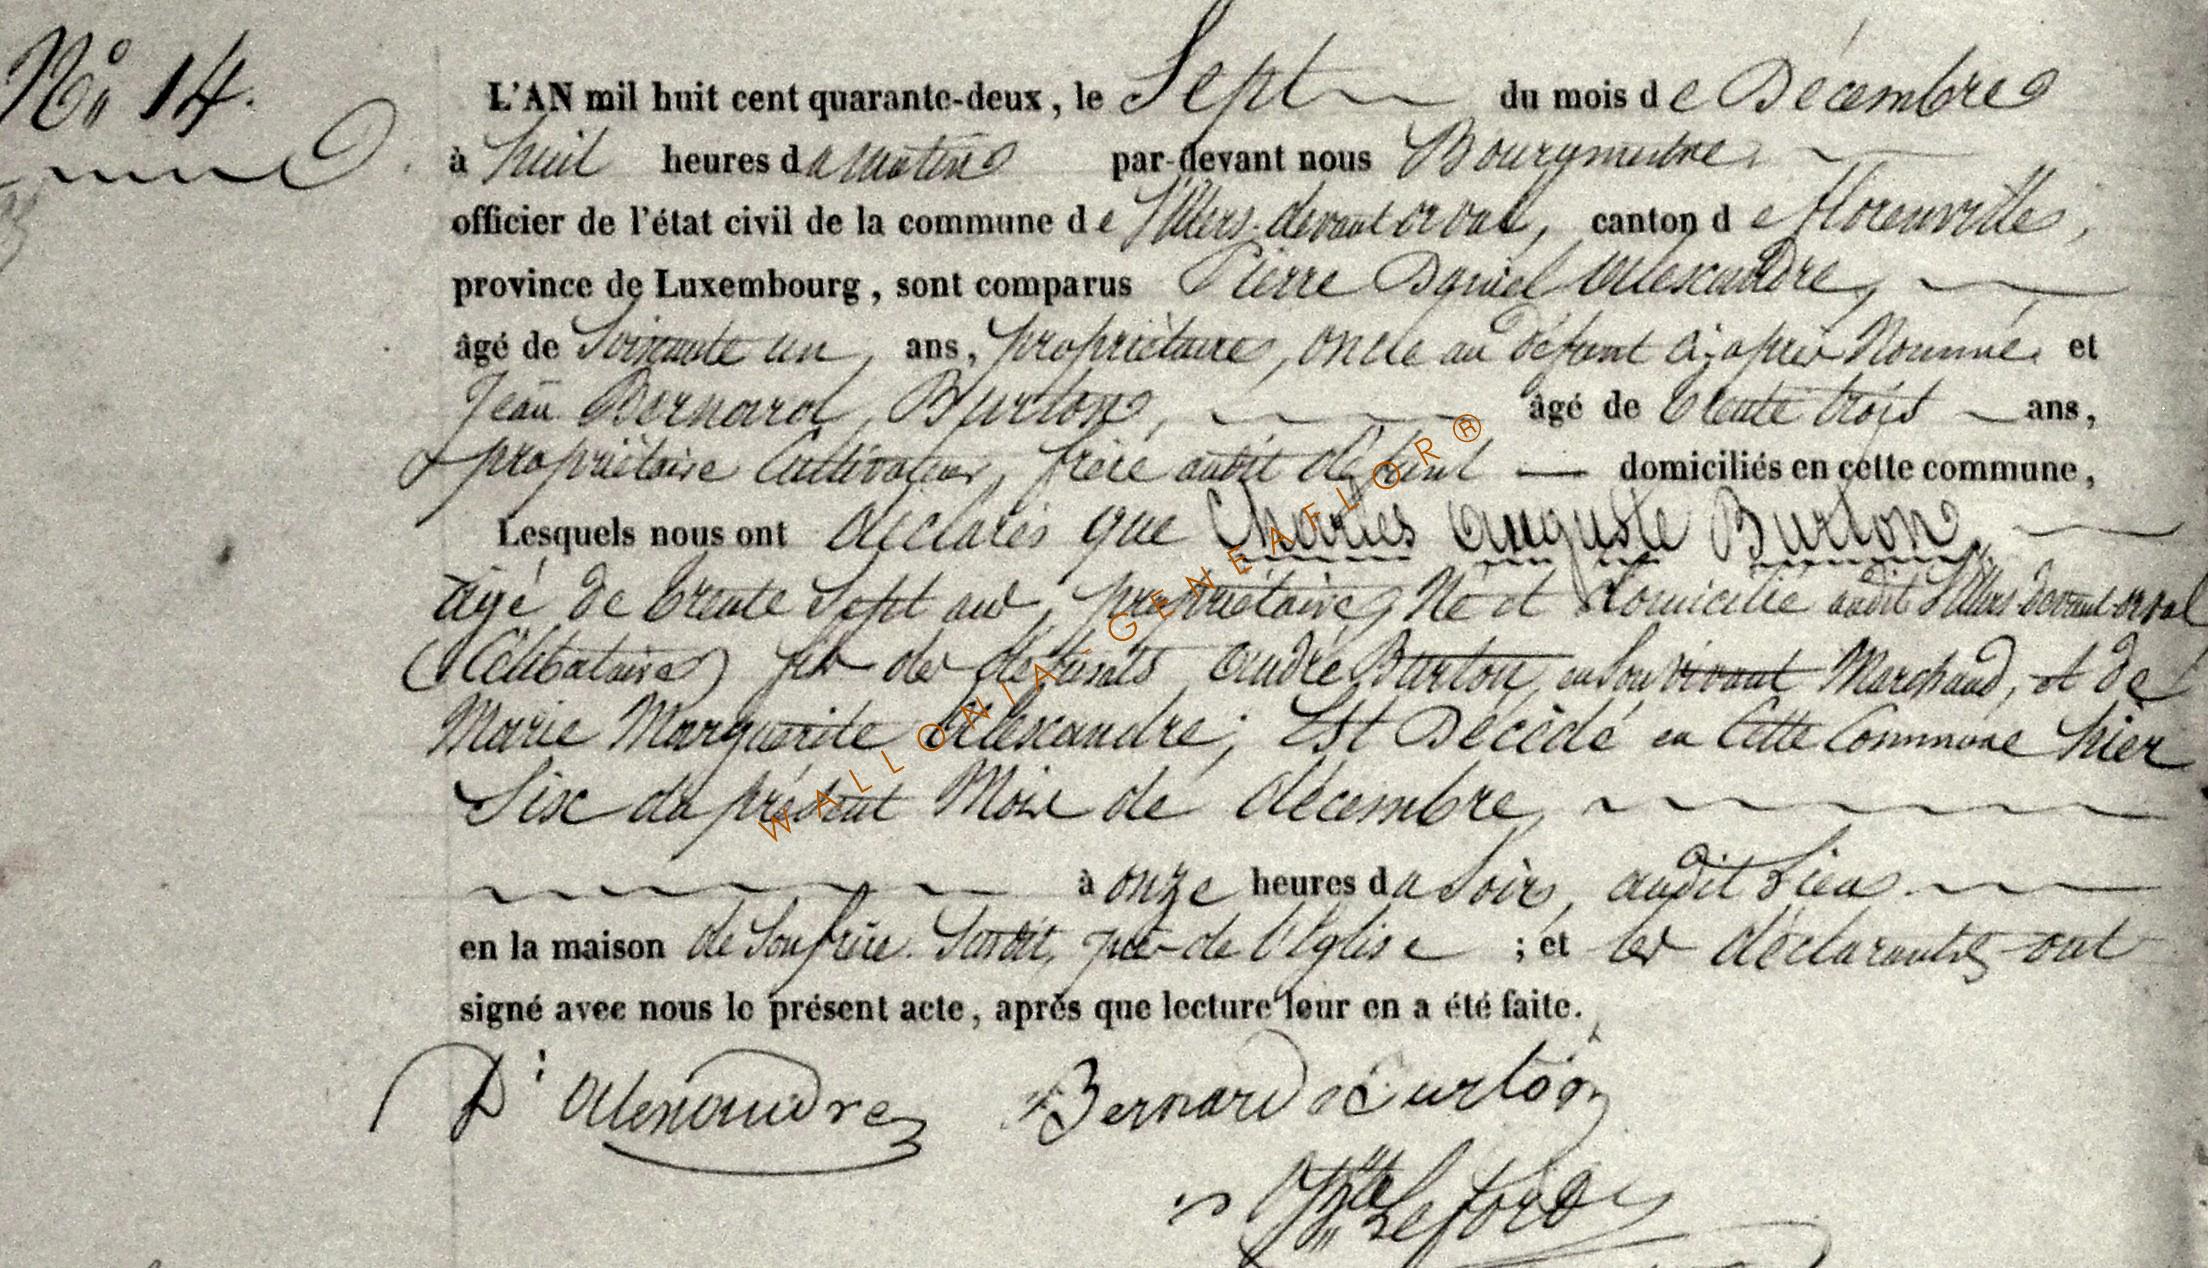 No 14.
L'AN mil huit cent quarante-deux, le Sept du mois de Décembre
à huit heures du matin par-devant nous Bourgmestre
officier de l'état civil de la commune de Villers-devant-orval, canton de Florenville,
province de Luxembourg, sont comparus Pierre Daniel Alexandre,
âgé de Soixante un, ans, propriétaire, oncle au défunt ci-après Nommé, et
Jean Bernard Burton, âgé de trente trois ans,
propriétaire Cultivateur, frère audit défunt domiciliés en cette commune,
Lesquels nous ont déclarés que Charles Auguste Burton,
âgé de trente Sept ans, propriétaire, Né et domicilié audit Villers-devant-orval
(Célibataire) fils des défunts André Burton, en son vivant Marchand, et de
Marie Marguerite Alexandre; Est Décédé en Cette Commune hier
Six du présent Mois de décembre,
à onze heures du Soir, audit Lieu
en la maison de Son frère Susdit, près de l'Eglise ; et les déclarants ont
signé avec nous le présent acte, après que lecture leur en a été faite.
Dl Alexandre Bernard Burton
WALLONIA-GENEAFLOR®